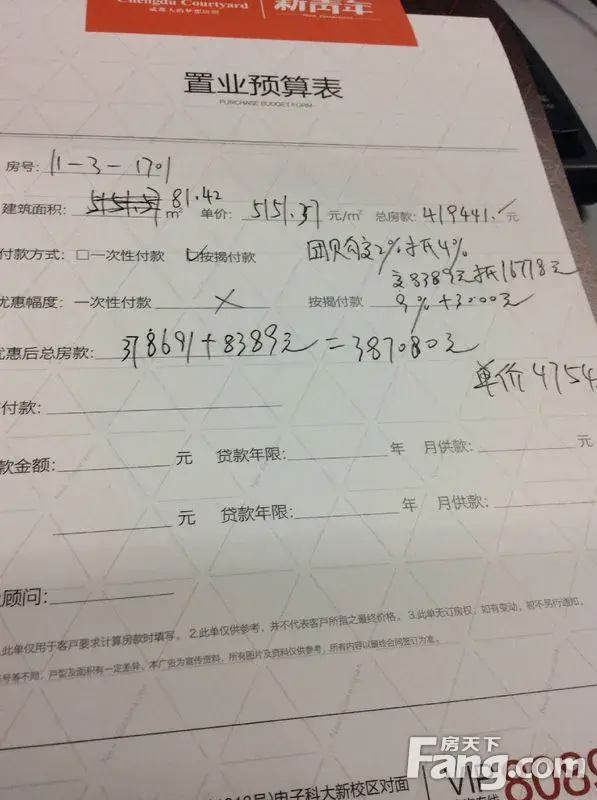 Chengdu Courtyard
成都人的梦想院则
置业预算表
PURCHASE BUDGET FORM
房号: 11-3-1701
建筑面积: 81.42 m² 单价: 5151.37 元/m² 总房款: 419441.元
付款方式: □一次性付款 ☑按揭付款 团购交2%抵4%
交8389元抵16778元
优惠幅度: 一次性付款 × 按揭付款 9%+3000元
优惠后总房款: 378691+8389元=387080元
单价4754
付款:
款金额: 元 贷款年限: 年 月供款: 元
元 贷款年限: 年 月供款:
顾问:
此单仅用于客户要求计算房款时填写。 2.此单仅供参考,并不代表客户所指之最终价格。 3.此单无订房权;如有变动,恕不另行通知。
号等不同;户型及面积有一定差异。本广告为宣传资料,所有图片及资料仅供参考,所有内容以最终合同签订为准。
号)电子科大新校区对面
VIP 8089
房天下
Fang.com